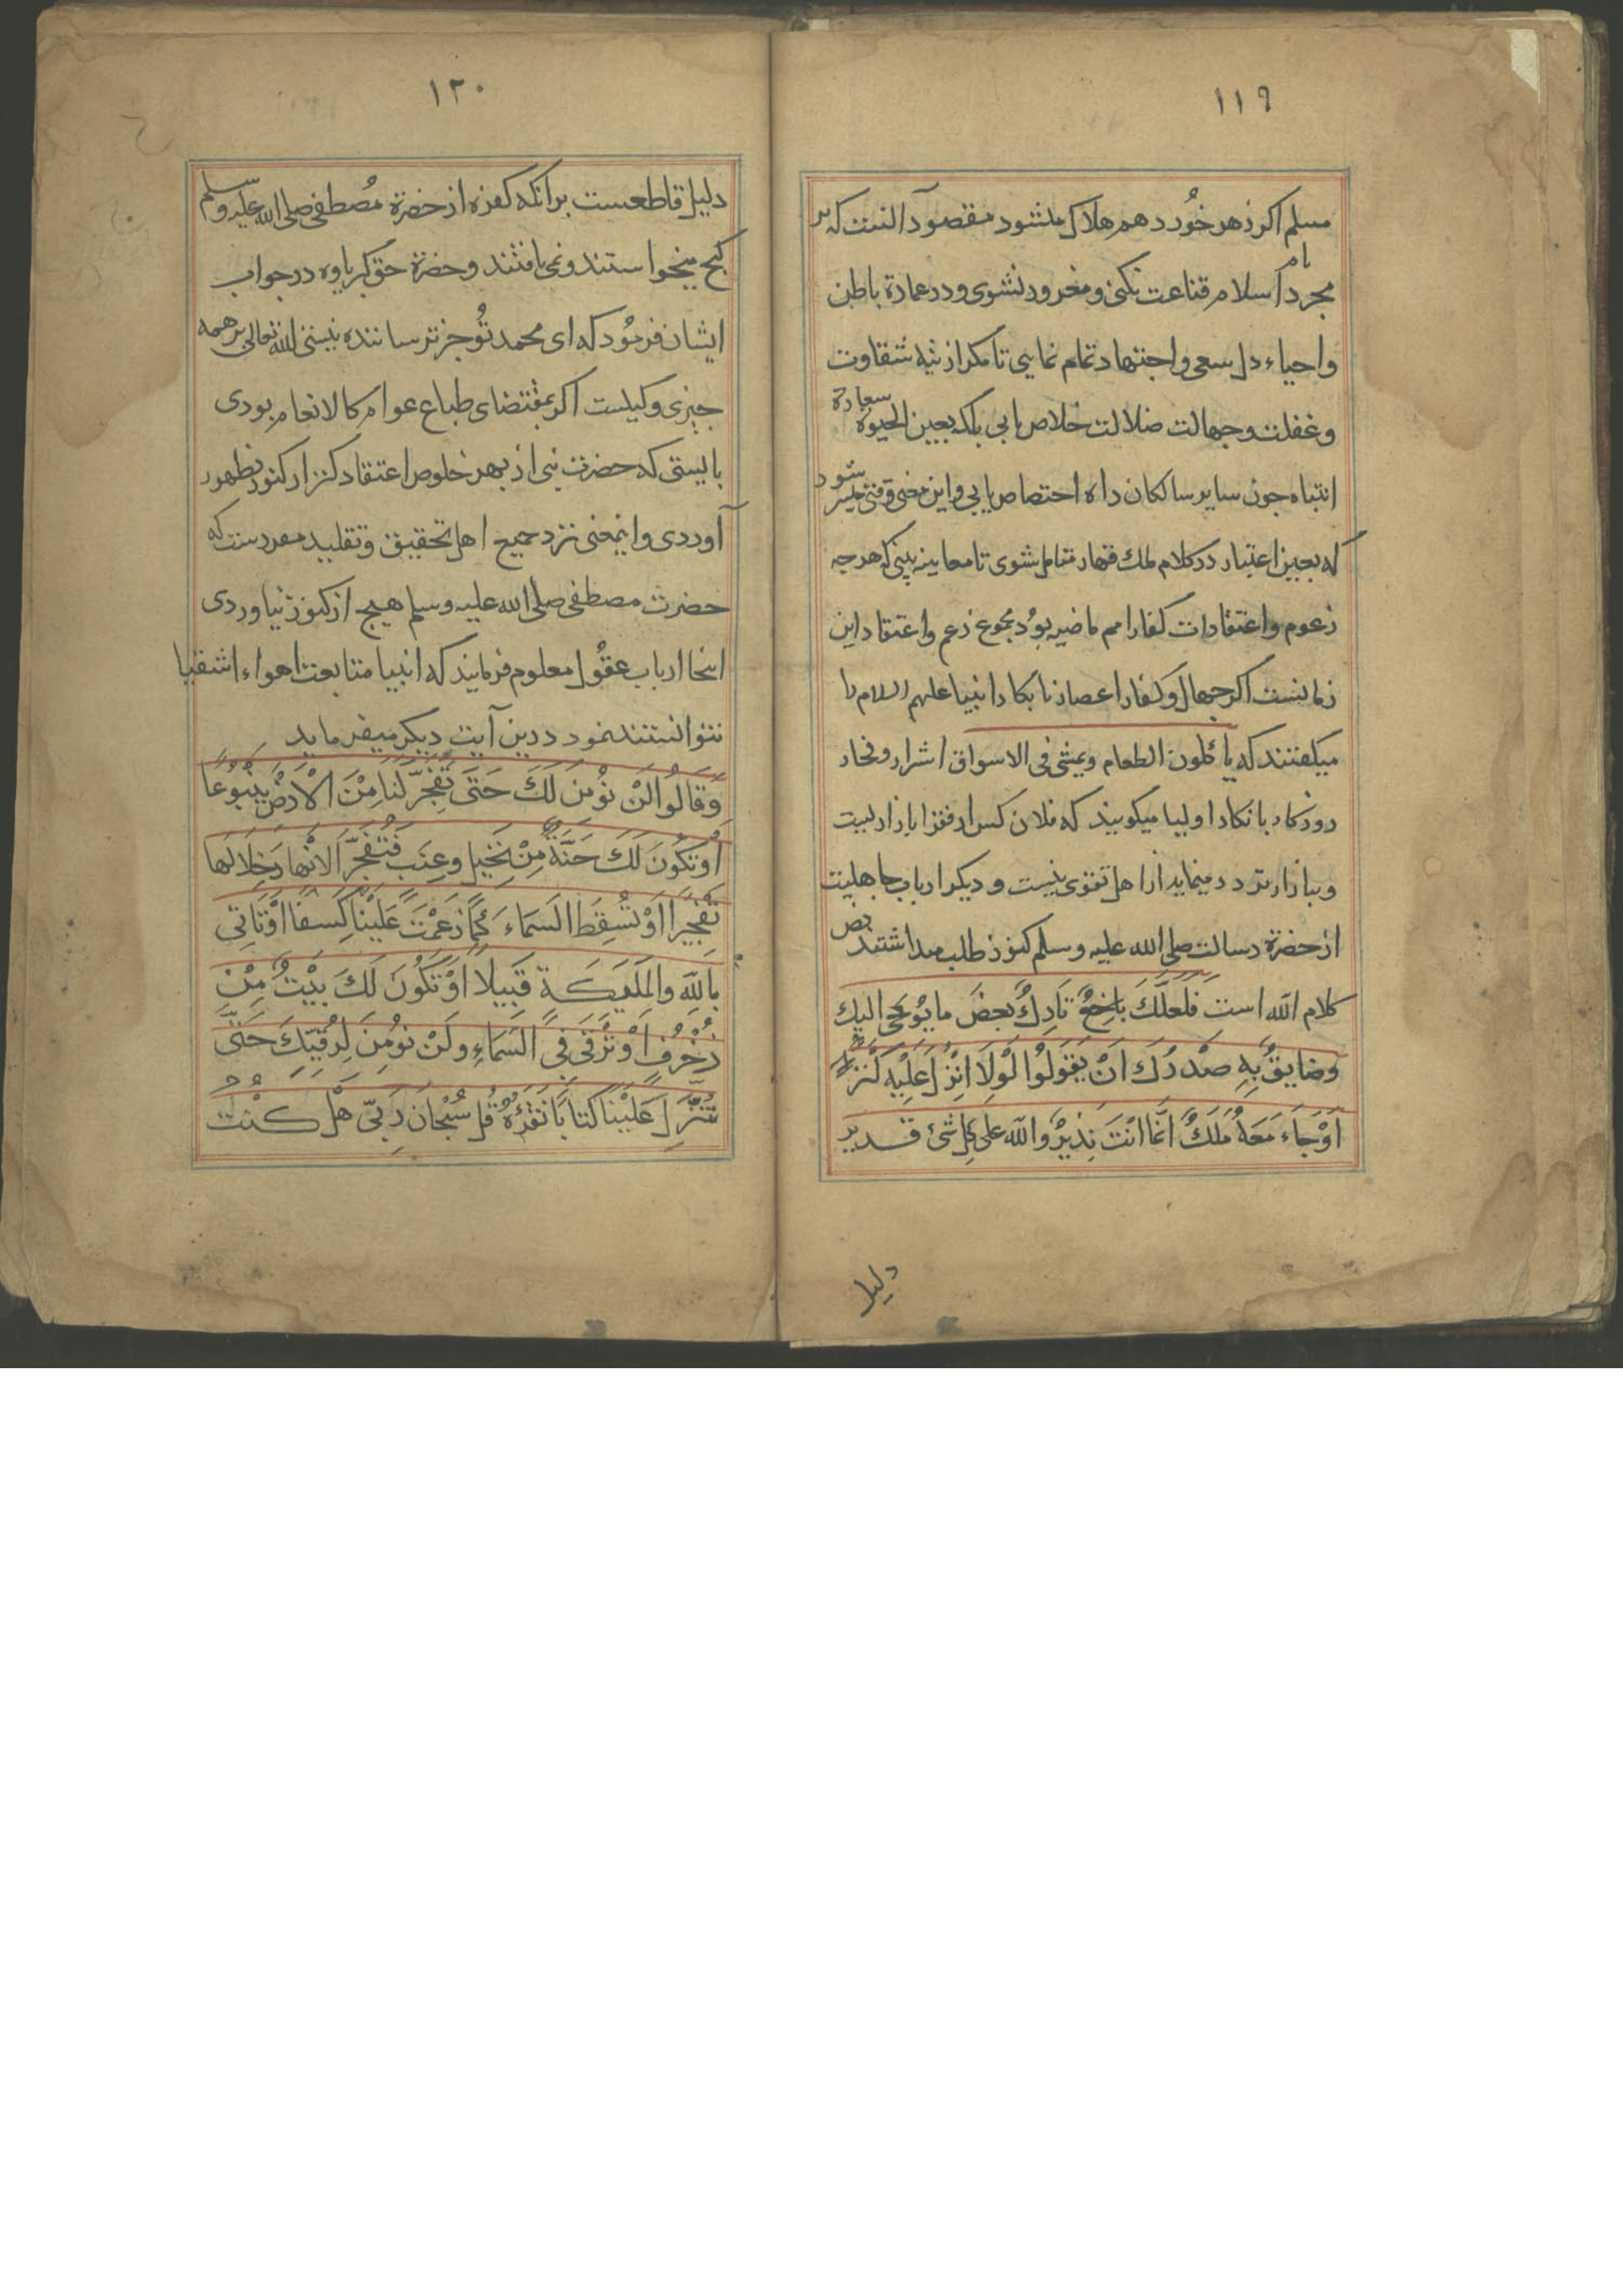 ۱۱۹
مسلم اکر زهر خُورد هم هلاک میشود مقصود آنست که بر
مجرد نام اسلام قناعت نکنی و مغرور نشوی و در عمارة باطن
واحیاء دل سعی واجتهاد تمام نمایی تا مکر از تیه شقاوت
وغفلت وجهالت ضلالت خلاص یابی بلکه بعین الحیوة سعادة
انتباه جون سایر سالکان راه اختصاص یابی واین معنی وقتی میسر شود
که بعین اعتبار در کلام ملك قهار متامل شوی تا معاینه بینی که هر جه
زعوم واعتقادات کفار امم ماضیه بوُد مجموع زعم واعتقاد این
زمانست اکر جهال وکفار اعصار بانکار انبیا علیهم السلام را
میکفتند که یأکلون الطعام ویمشی فی الاسواق اشرار وفجار
روزکار بانکار اولیا میکویند که فلان کس از فقرا بازاریست
وببازار تردد مینماید از اهل تقوی نیست و دیکر ارباب جاهلیت
از حضرة رسالت صلی الله علیه وسلم کنوز طلب میداشتند نص
کلام الله است فَلَعَلَّكَ بَاخِعٌ تَارِكٌ بَعْضَ ما یُوحَی الیك
وضَایِقٌ بِهِ صَدْرُكَ اَنْ یَقُولُوا لَوْلَا اُنْزِلَ عَلَیْهِ کَنْزٌ
اَوْ جَاءَ مَعَهُ مَلَكٌ انَّما انْتَ نَذِیرٌ والله علی کل شئ قدیر
دلیل
۱۲۰
دلیل قاطعست بر آنکه کفره از حضرة مُصطفی صلی الله علیه وسلم
کنج میخواستند ونمی یافتند وحضرة حق کبریاوه در جواب
ایشان فرمُود که ای محمد تُو جز ترساننده نیستی الله تعالی بر همه
جیزی وکیلست اکر بمقتضای طباع عوام کالانعام بودی
بایستی که حضرت نبی از بهر خلوص اعتقاد کنز از کنوز بظهور
آوردی واینمعنی نزد جمیع اهل تحقیق وتقلید مقررست که
حضرت مصطفی صلی الله علیه وسلم هیج از کنوز نیاوردی
اینجا ارباب عقُول معلوم فرمایند که انبیا متابعت اهواء اشقیا
نتوانستند نمود درین آیت دیکر میفرماید
وَقَالُوا لَنْ نُؤمِنَ لَكَ حَتَّی تَفْجُرَ لَنَا مِنَ الْأَرْضِ یَنْبُوعًا
اَوْ تَکُونَ لَكَ جَنَّةٌ مِنْ نَخِیلٍ وعِنَبٍ فَتُفَجِّرَ الانْهارَ خِلَالَهَا
تَفْجِیرًا اَوْ تُسْقِطَ السَمَاءَ کَمَا زَعَمْتَ عَلَیْنَا کِسَفًا اَوْ تَاْتِیَ
بِاللهِ والمَلٰئِکَةِ قَبِیلًا اَوْ تَکُونَ لَكَ بَیْتٌ مِنْ
زُخْرُفٍ اَوْ تَرْقَی فِی السَمَاءِ ولَنْ نُؤمِنَ لِرُقِیِّكَ حَتَّی
تُنَزِّلَ عَلَیْنَا کتَابًا نَقْرَؤُهُ قُلْ سُبْحَانَ رَبِّی هَلْ کُنْتُ